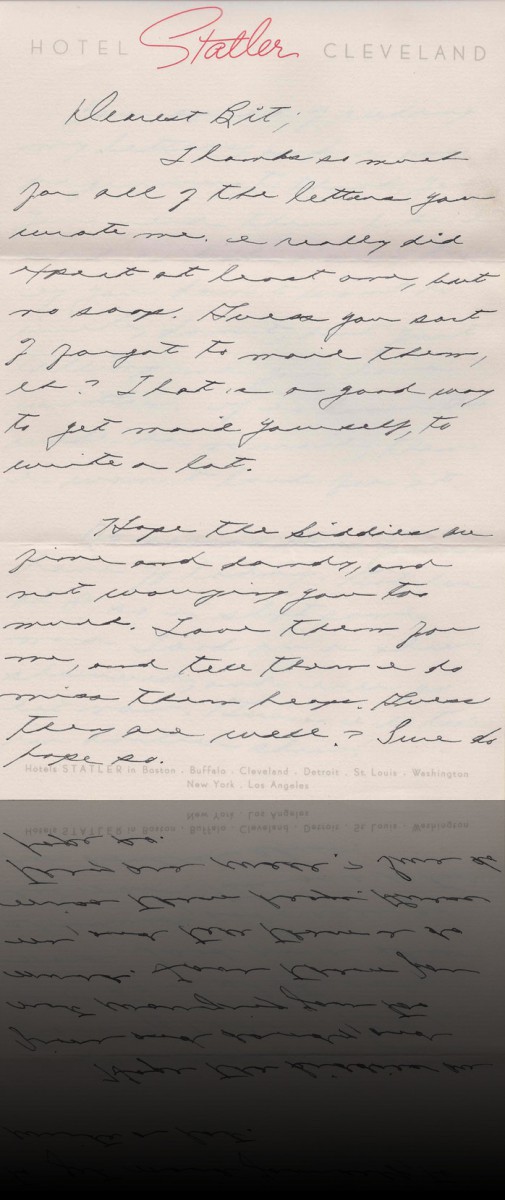 HOTEL Statler CLEVELAND
Dearest Bit,
Thanks so much
for all of the letters you
wrote me. I really did
expect at least one, but
no soap. Guess you sort
of forgot to mail them,
eh? That is a good way
to get mail yourself, to
write a lot.
Hope the kiddies are
fine and dandy, and
not worrying you too
much. Love them for
me, and tell them I do
miss them heaps. Guess
they are well? Sure do
hope so.
Hotels STATLER in Boston . Buffalo . Cleveland . Detroit . St. Louis . Washington
New York . Los Angeles